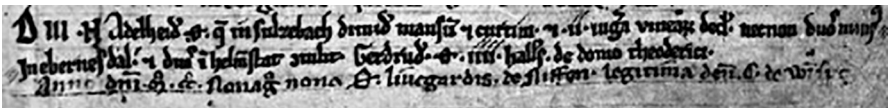 D III · N Adelheid' · o · q̄ in sulzebach dimid' mansū & curtim · & · ii · iug̃a vinearꝫ ded' · necnon duos mans'
In ebernesdal' · & duos ī helmstat contulit · Gerdrud' · o · iiii · hall's · de domo theoderici ·
Anno dn̄i · M̊ · C̊ · Nonag̊ · nono · O · liucgardis · de Niffen · legitima dn̄i · C · de